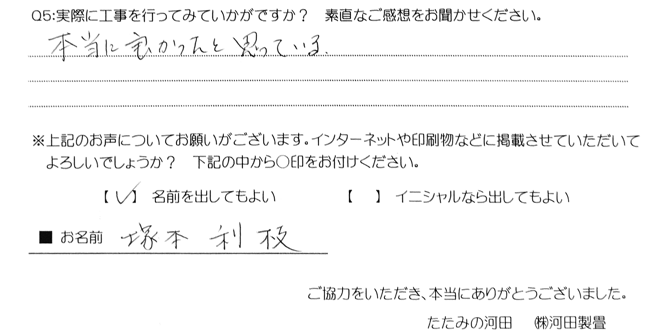 Q5:実際に工事を行ってみていかがですか？　素直なご感想をお聞かせください。
本当に良かったと思っている.
※上記のお声についてお願いがございます。インターネットや印刷物などに掲載させていただいて
よろしいでしょうか？　下記の中から○印をお付けください。
【 ✓ 】 名前を出してもよい　　　【　】 イニシャルなら出してもよい
■ お名前　塚本 利枝
ご協力をいただき、本当にありがとうございました。
たたみの河田　㈱河田製畳